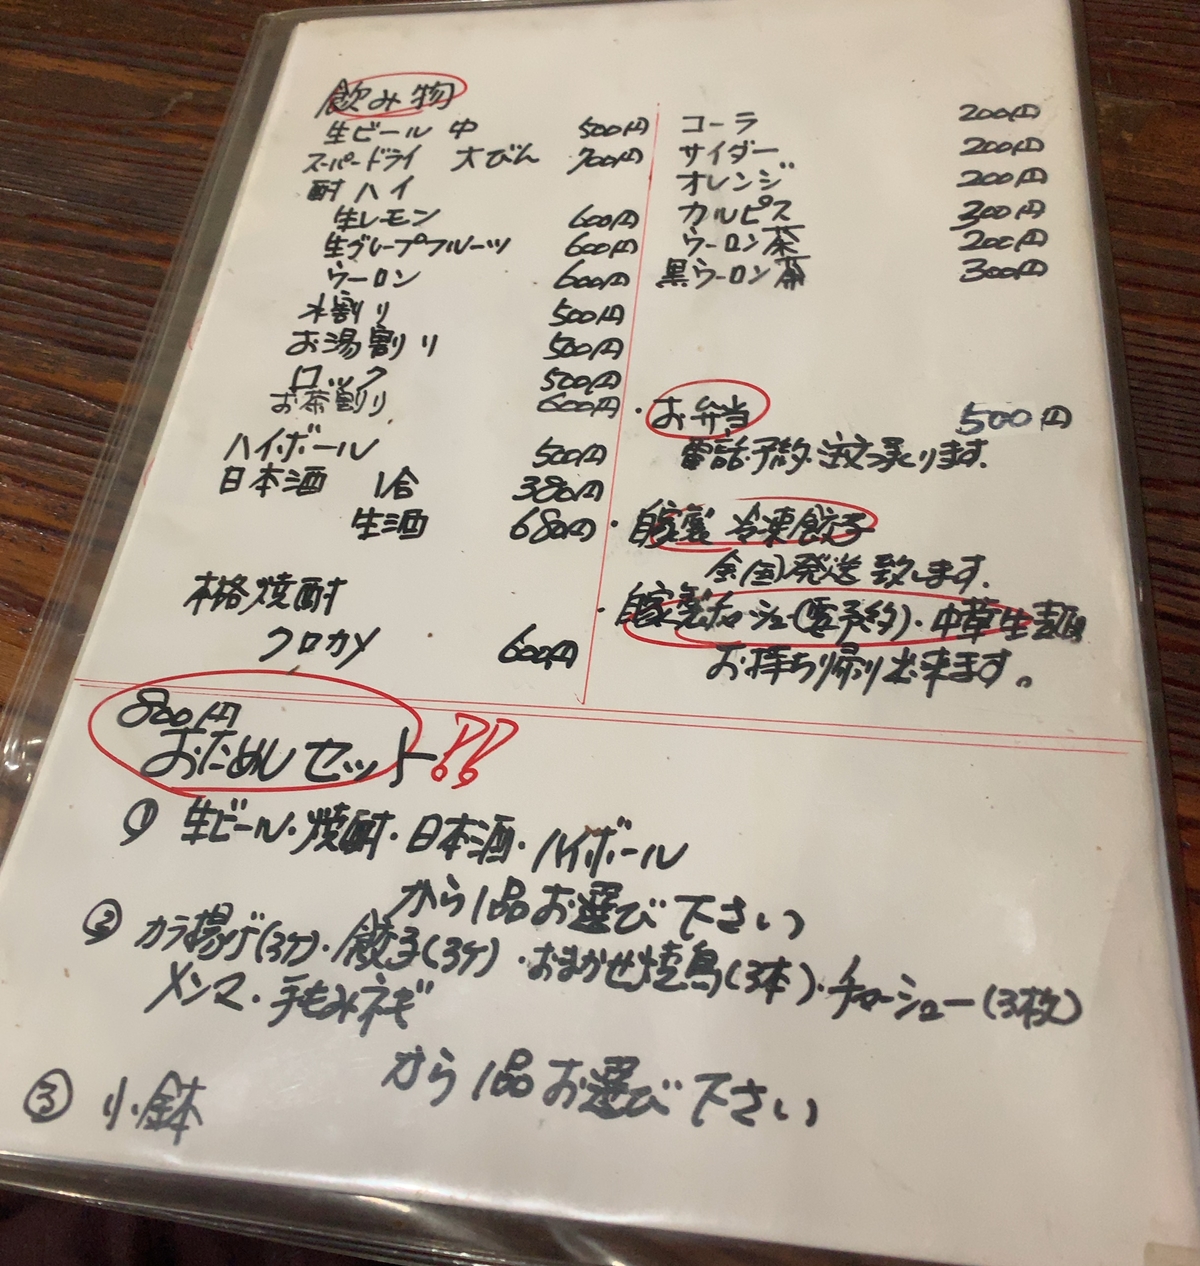 飲み物
生ビール 中 500円
スーパードライ 大びん 700円
酎ハイ
生レモン 600円
生グレープフルーツ 600円
ウーロン 600円
水割り 500円
お湯割り 500円
ロック 500円
お茶割り 600円
ハイボール 500円
日本酒 1合 380円
生酒 680円
本格焼酎
クロカメ 600円
コーラ 200円
サイダー 200円
オレンジ 200円
カルピス 300円
ウーロン茶 200円
黒ウーロン茶 300円
・お弁当 500円
電話予約・注文承ります。
・自家製 冷凍餃子
全国発送致します。
・自家製チャーシュー(要予約)・中華生麺
お持ち帰り出来ます。
800円
おためしセット!!
① 生ビール・焼酎・日本酒・ハイボール
から1品お選び下さい
② カラ揚げ(3ケ)・餃子(3ケ)・おまかせ焼鳥(3本)・チャーシュー(3枚)
メンマ・手もみネギ
から1品お選び下さい
③ 小鉢